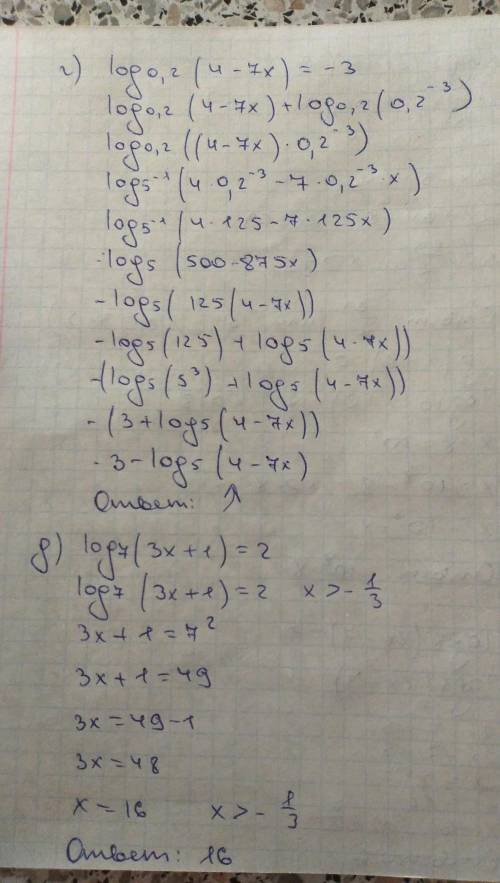 г) log₀,₂ (4-7x) = -3
log₀,₂ (4-7x) + log₀,₂ (0,2⁻³)
log₀,₂ ((4-7x)·0,2⁻³)
log₅⁻¹ (4·0,2⁻³ - 7·0,2⁻³·x)
log₅⁻¹ (4·125 - 7·125x)
-log₅ (500-875x)
-log₅ (125(4-7x))
-log₅ (125) + log₅ (4-7x))
-(log₅ (5³) + log₅ (4-7x))
-(3+log₅ (4-7x))
-3-log₅ (4-7x)
Ответ: ↑
д) log₇ (3x+1) = 2
log₇ (3x+1) = 2 x > -1/3
3x+1 = 7²
3x+1 = 49
3x = 49-1
3x = 48
x = 16 x > -1/3
Ответ: 16